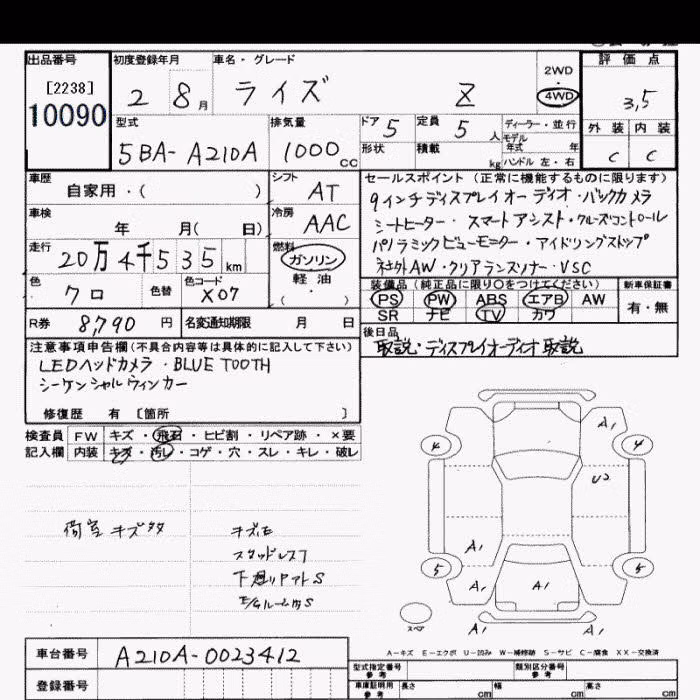 出品番号 初度登録年月 車名・グレード 2WD 評価点
[2238] 2 8月 ライズ Z 4WD 3,5
10090
型式 排気量 ドア 5 定員 5人 ディーラー・並行 外装 内装
モデル年式 年
5BA-A210A 1000cc 形状 積載 kg ハンドル 左・右 C C
車歴 自家用・( ) シフト AT セールスポイント (正常に機能するものに限ります)
9インチディスプレイオーディオ・バックカメラ
車検 年 月( 日) 冷房 AAC シートヒーター・スマートアシスト・クルーズコントロール
走行 20万4千535km 燃料 ガソリン パノラミックビューモニター・アイドリングストップ
軽油 社外AW・クリアランスソナー・VSC
色 クロ 色替 色コード X07 ・( )
装備品 (純正品に限り○をつけてください) 新車保証書
PS PW ABS エアB AW 有・無
SR ナビ TV カワ
R券 8,790円 名変通知期限 月 日
後日品
取説・ディスプレイオーディオ取説
注意事項申告欄(不具合内容等は具体的に記入して下さい)
LEDヘッドカメラ・BLUE TOOTH
シーケンシャルウィンカー
修復歴 有 [箇所 ]
検査員 FW キズ・飛石・ヒビ割・リペア跡・×要
記入欄 内装 キズ・汚レ・コゲ・穴・スレ・キレ・破レ
荷室キズ多 キズ
スタッドレス7
下廻り S
E/Gルーム S
A1
4 4
U2
A1
5 5
A1 A1 A1
スペア A1 A1
A-キズ E-エクボ U-凹み W-補修跡 S-サビ C-腐食 XX-交換済
車台番号 A210A-0023412
登録番号
型式指定番号 参考 類別区分番号 参考
車庫証明用 参考 長さ cm 幅 cm 高さ cm